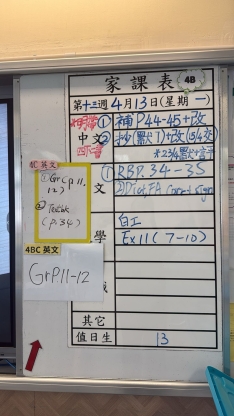 家課表 4B
第十三週 4月13日(星期一)
中文
① 補 P.44-45+改
② 抄(默17)+改(5/4交)
4C 英文
① Gr (p.11,
12)
②
(p.34)
文
① RBP.34-35
② Dict, FA
4BC 英文
GrP11-12
學
自工
Ex11(7-10)
其它
值日生 13